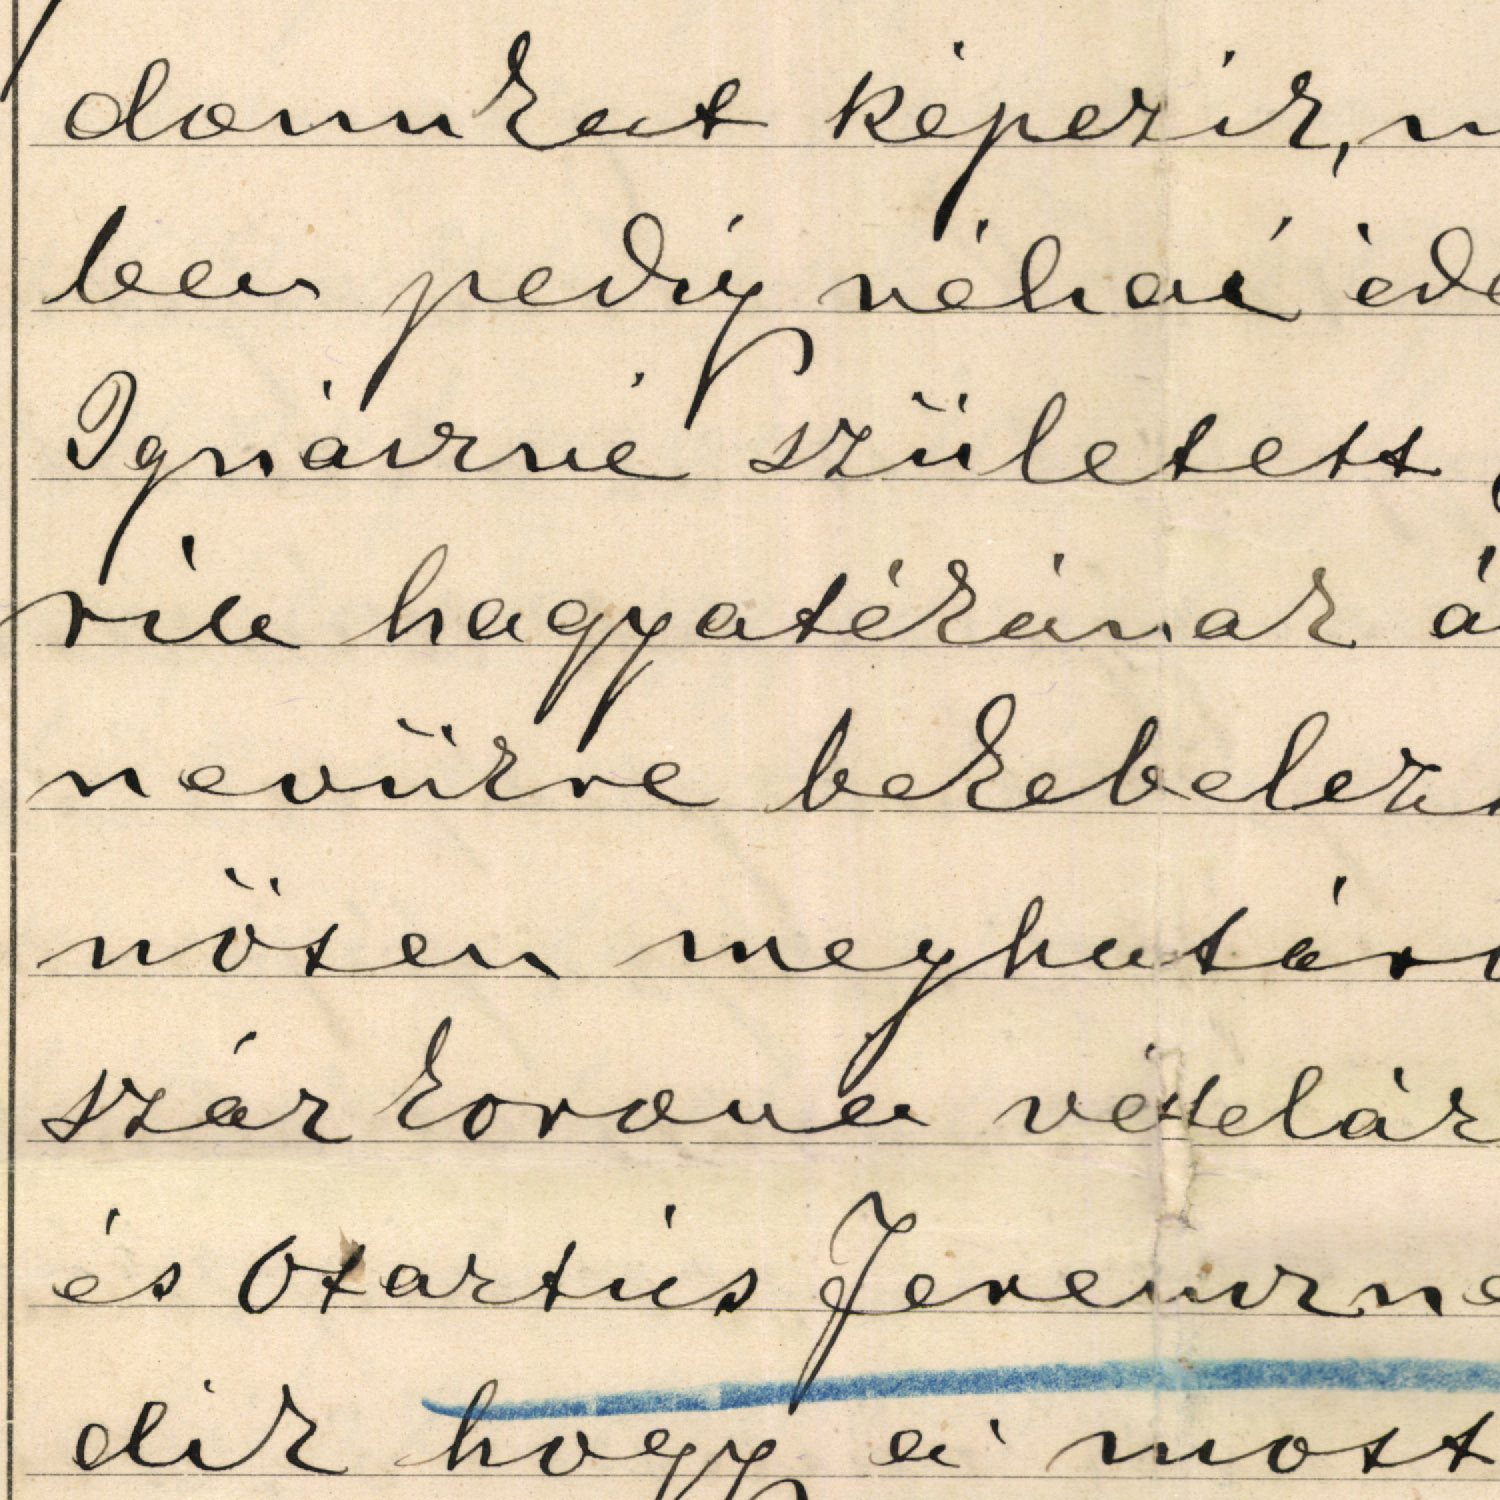 donunkat képezik, n
ben pedig néhai éde
Ignáczné született
rik hagyatékának á
nevünkre bekebelez
nösen meghatáro
száz korona vételár
és Osartus Jerewzne
dik hogy a most